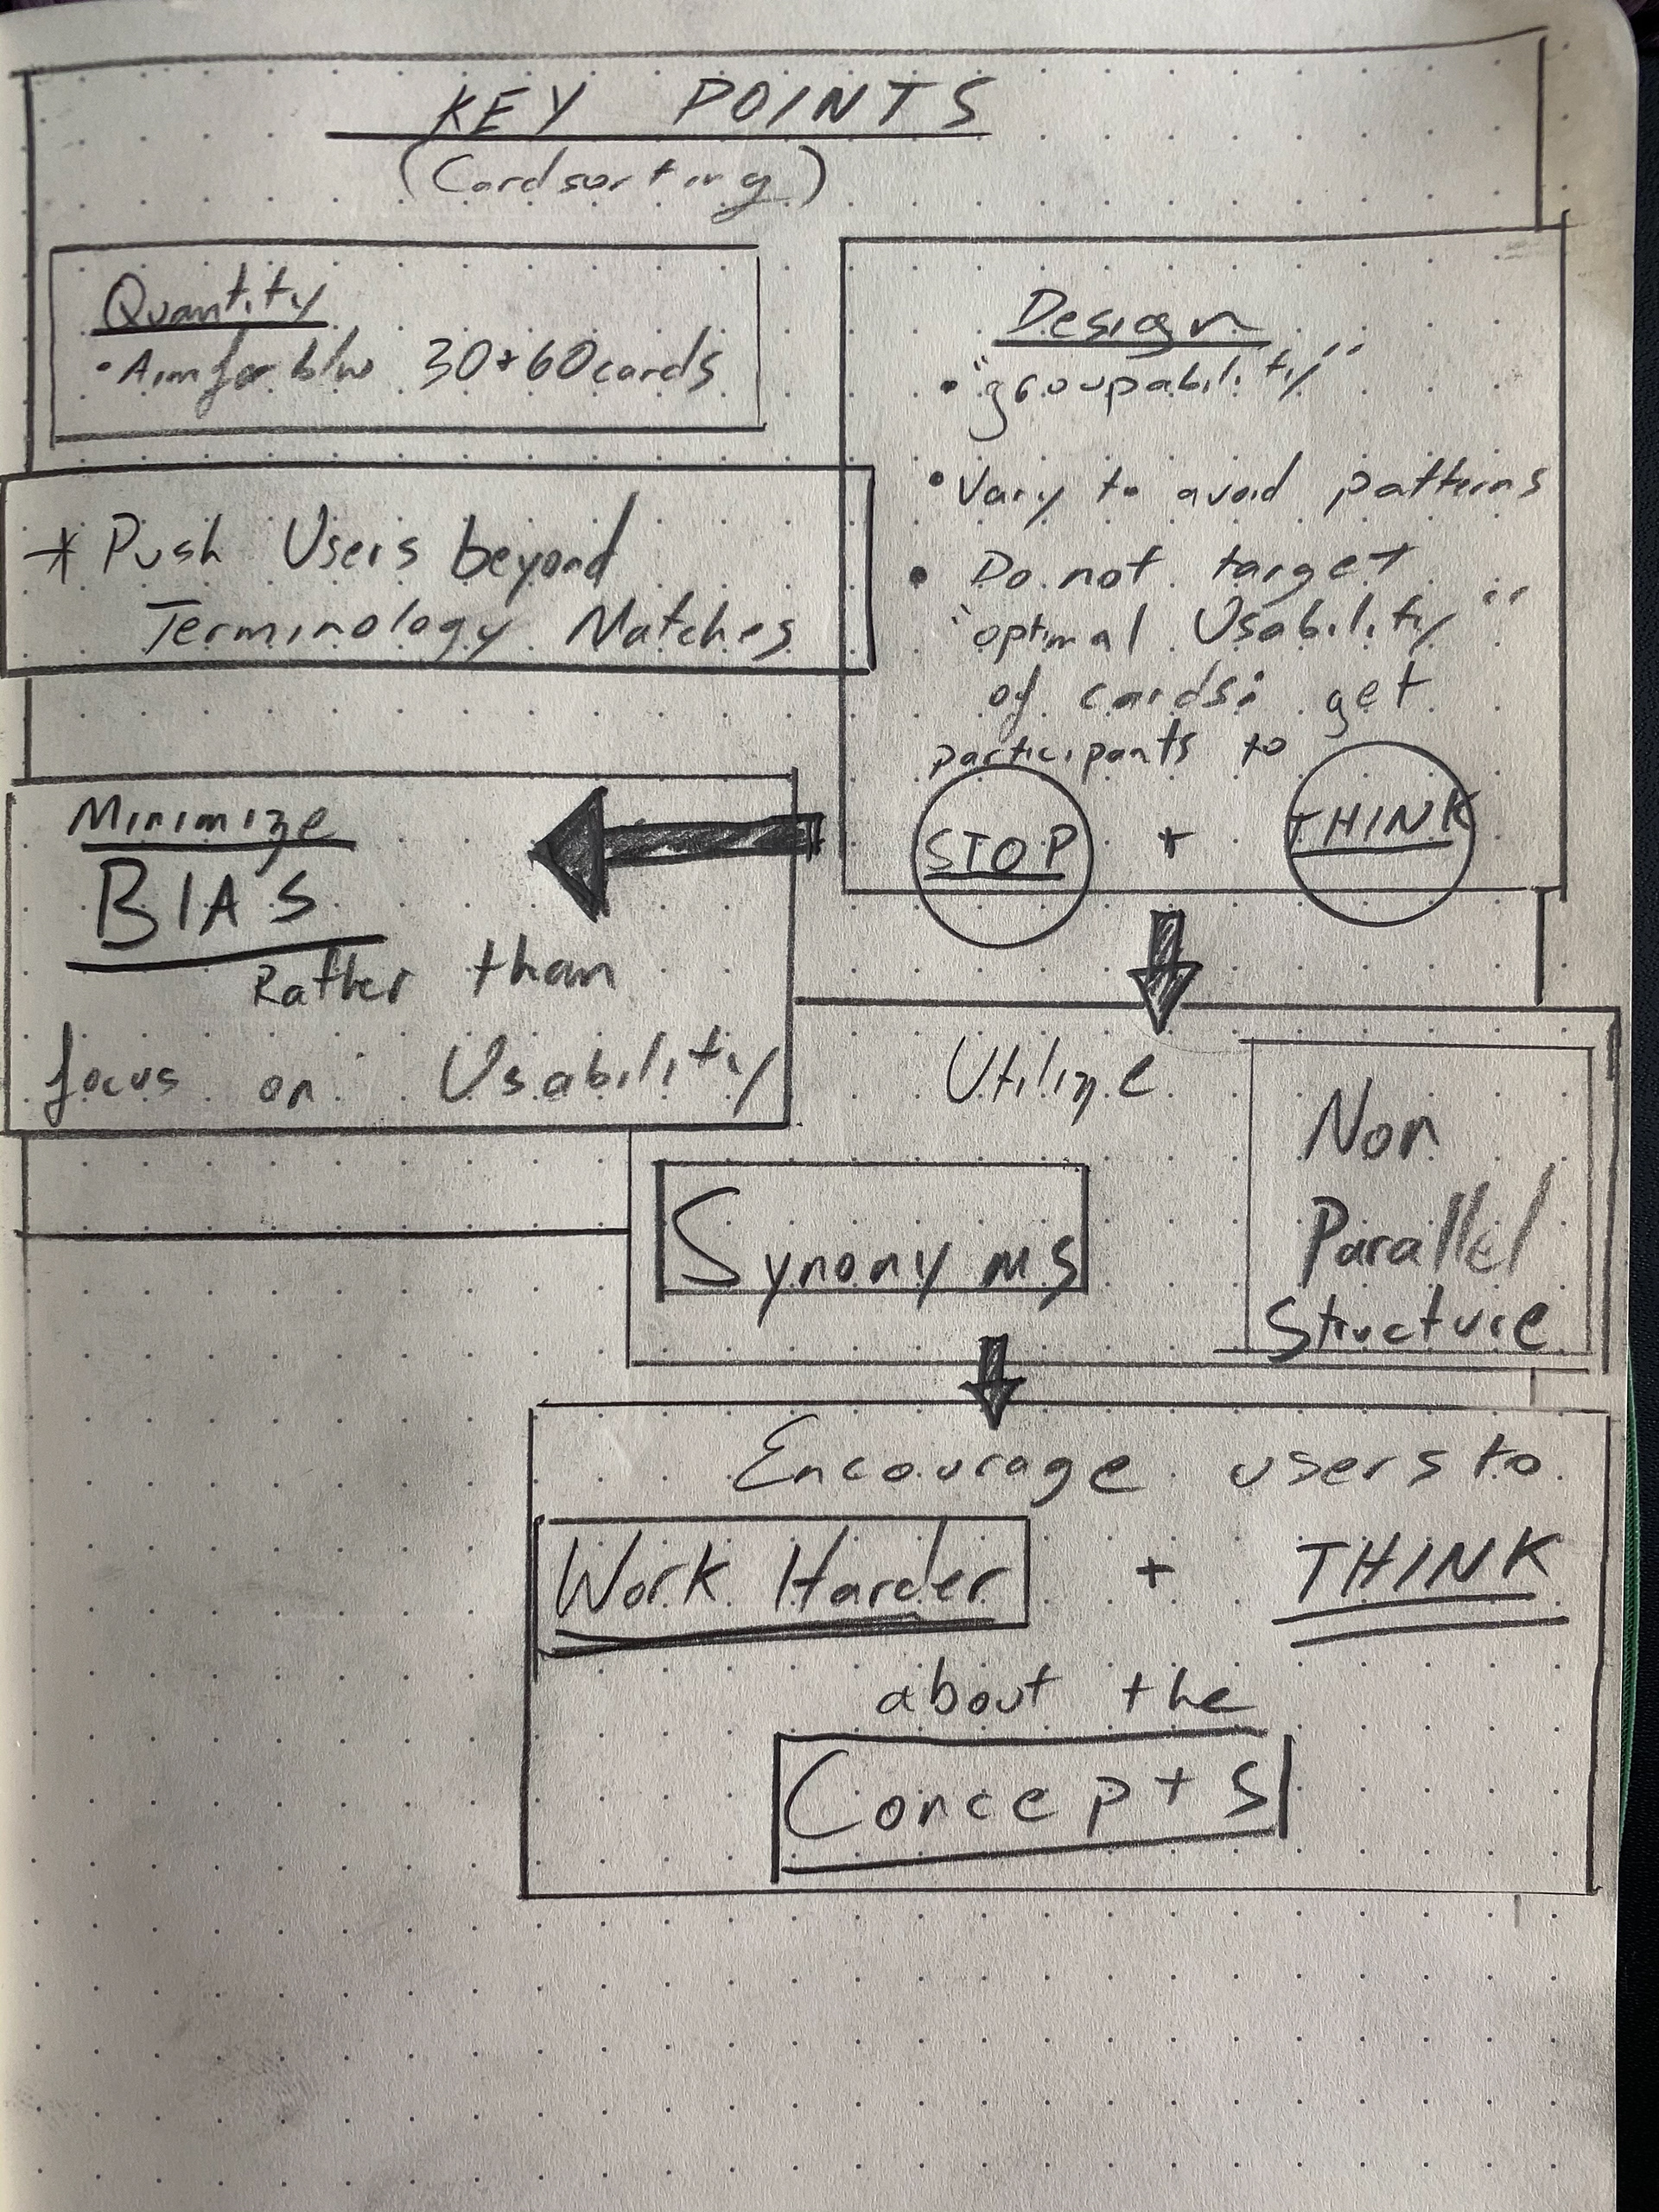 KEY POINTS
(Cardsorting)
Quantity
• Aim for b/w 30+60 cards
* Push Users beyond
Terminology Matches
Design
• "groupability"
• Vary to avoid patterns
• Do not target
"optimal Usability"
of cards; get
participants to
STOP + THINK
Minimize
BIAS
Rather than
focus on Usability
Utilize
Synonyms
Non
Parallel
Structure
Encourage users to
Work Harder + THINK
about the
Concepts